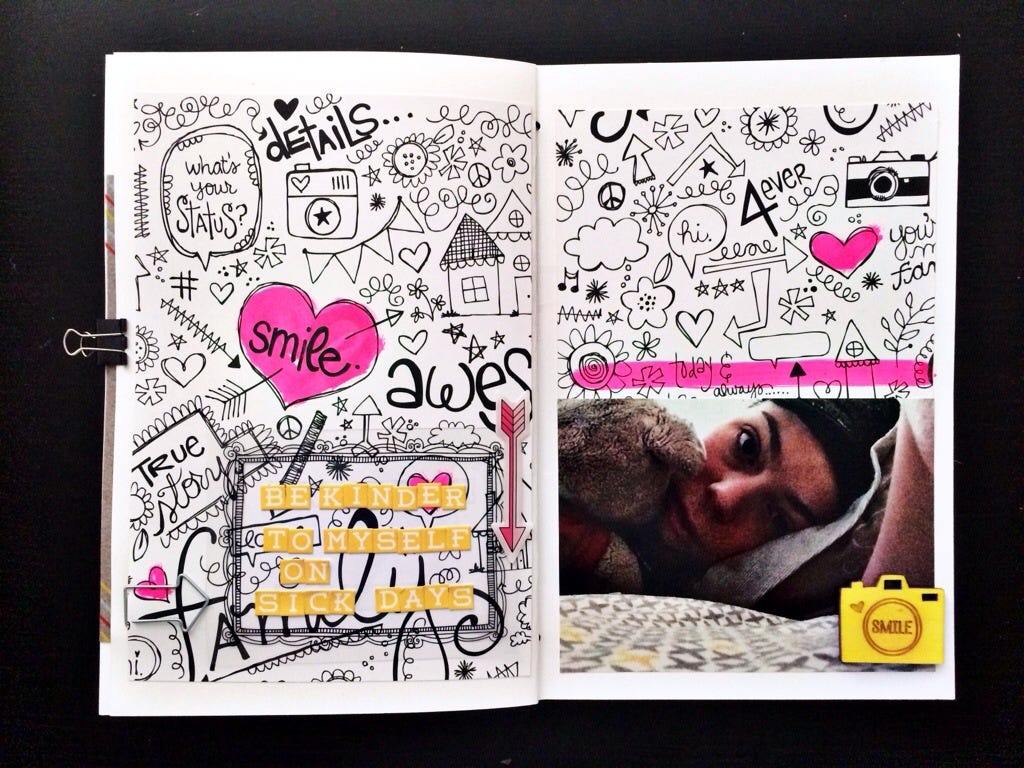 details...
what's
your
STATUS?
#
smile.
awes
TRUE
story
BE KINDER
TO MYSELF
ON
SICK DAYS
hi.
4EVER
hi.
today &
always......
SMILE